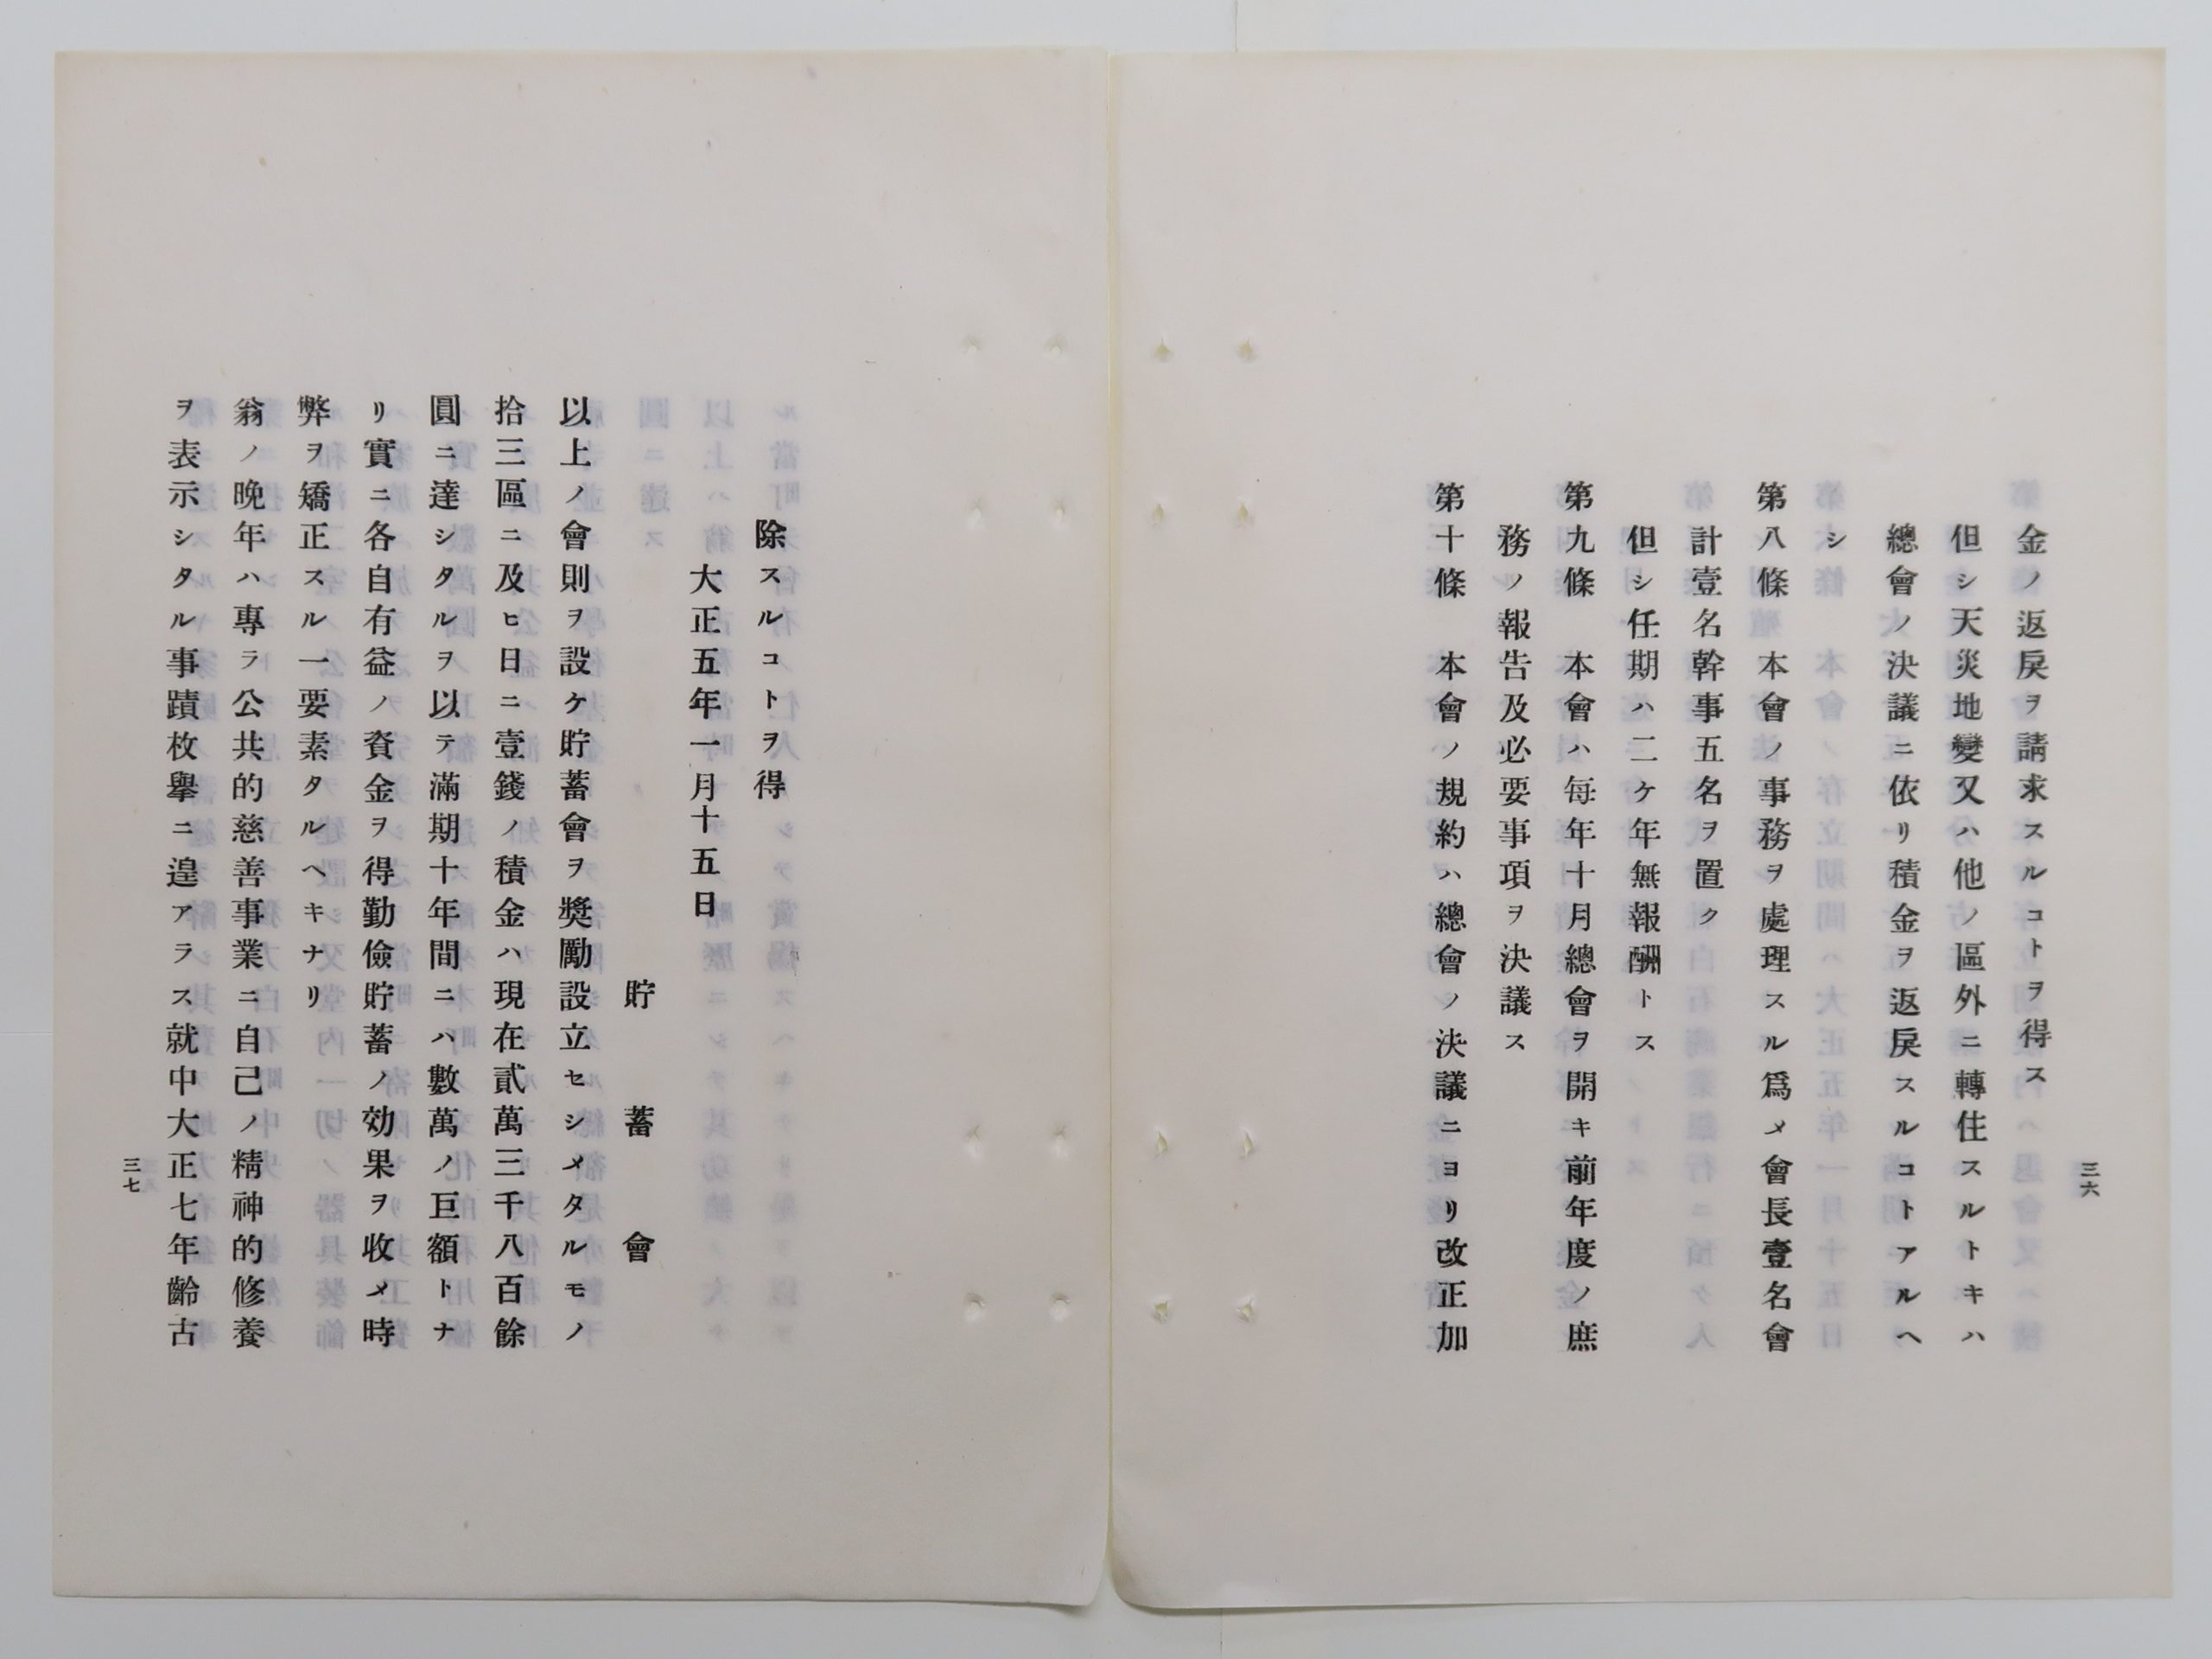 三六
金ノ返戾ヲ請求スルコトヲ得ス
但シ天災地變又ハ他ノ區外ニ轉住スルトキハ
總會ノ決議ニ依リ積金ヲ返戾スルコトアルヘ
シ
第八條　本會ノ事務ヲ處理スル爲メ會長壹名會
計壹名幹事五名ヲ置ク
但シ任期ハ二ケ年無報酬トス
第九條　本會ハ每年十月總會ヲ開キ前年度ノ庶
務ノ報告及必要事項ヲ決議ス
第十條　本會ノ規約ハ總會ノ決議ニヨリ改正加
除スルコトヲ得
大正五年一月十五日
貯蓄會
以上ノ會則ヲ設ケ貯蓄會ヲ奬勵設立セシメタルモノ
拾三區ニ及ヒ日ニ壹錢ノ積金ハ現在貳萬三千八百餘
圓ニ達シタルヲ以テ滿期十年間ニハ數萬ノ巨額トナ
リ實ニ各自有益ノ資金ヲ得勤儉貯蓄ノ効果ヲ收メ時
弊ヲ矯正スル一要素タルヘキナリ
翁ノ晚年ハ專ラ公共的慈善事業ニ自己ノ精神的修養
ヲ表示シタル事蹟枚擧ニ遑アラス就中大正七年齡古
三七